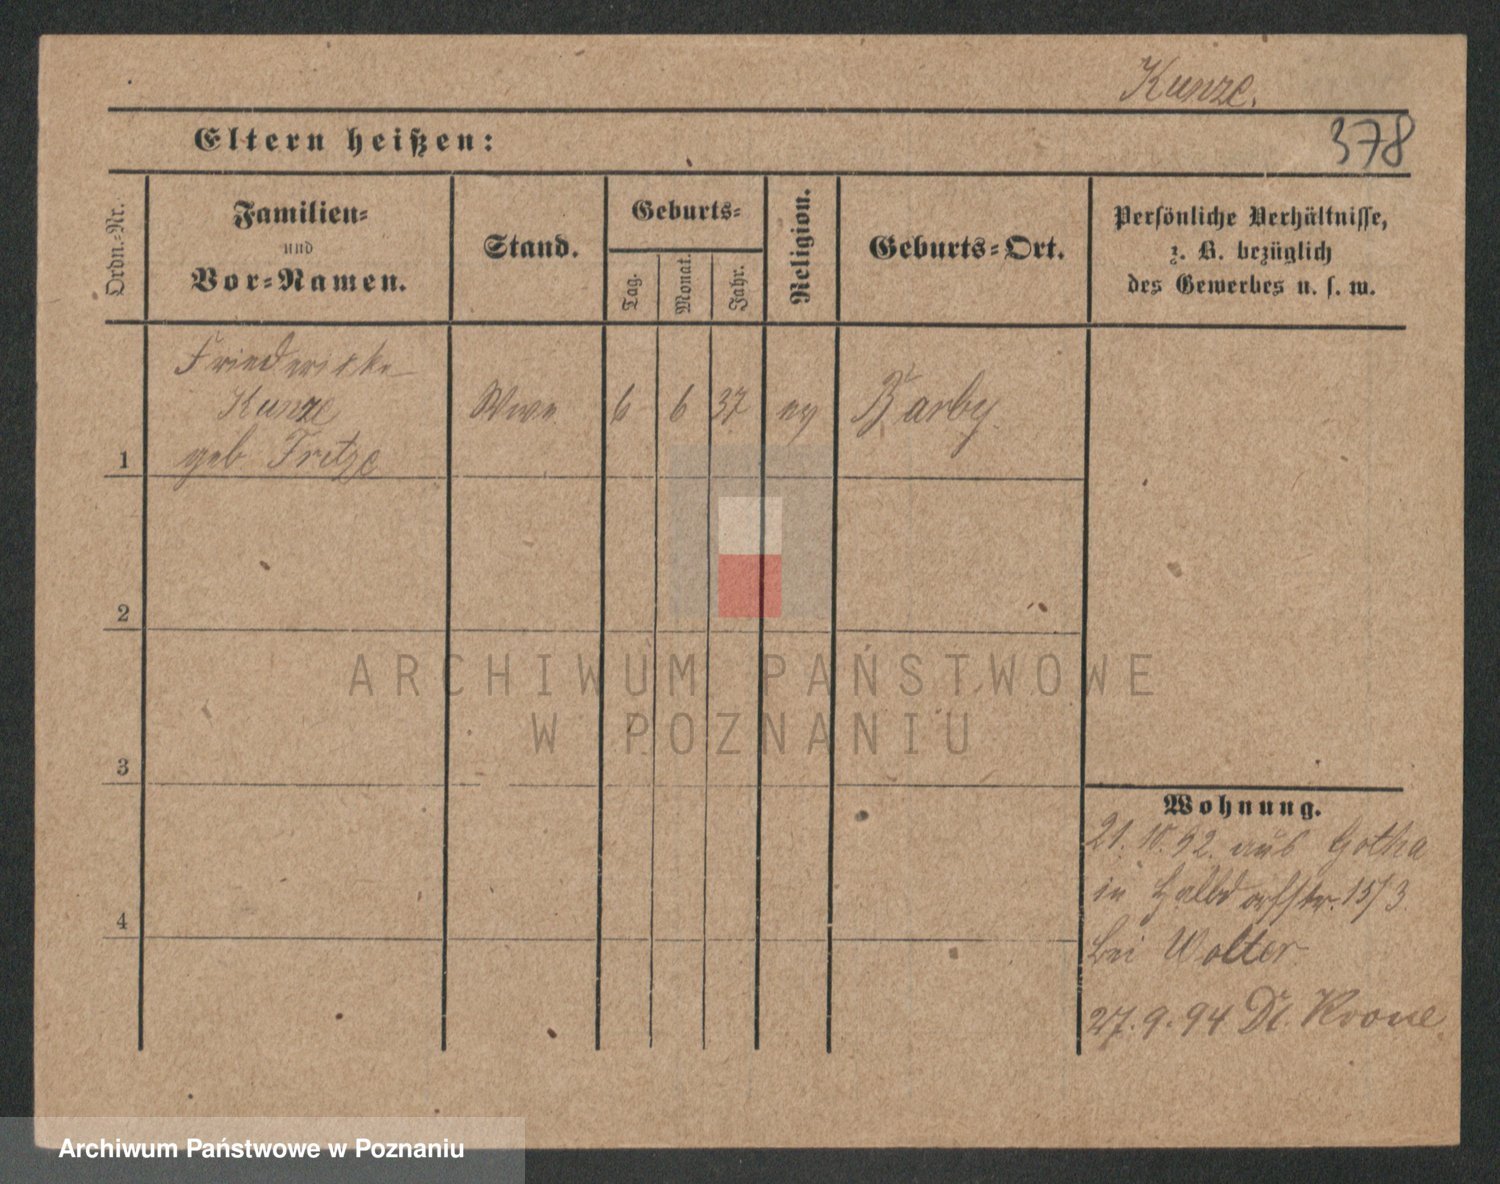 Kunze.
378
Eltern heißen:
Ordn.-Nr.
Familien-
und
Vor-Namen.
Stand.
Geburts-
Tag.
Monat.
Jahr.
Religion.
Geburts-Ort.
Persönliche Verhältnisse,
z. B. bezüglich
des Gewerbes u. s. w.
1
Friedericke
Kunze
geb Fritze
Wwe
6
6
37
ev
Barby
2
3
4
Wohnung.
21. 10. 92. aus Gotha
in Halbdorfstr. 15/3
bei Wolter
27. 9. 94 Dt. Krone
ARCHIWUM PAŃSTWOWE
W POZNANIU
Archiwum Państwowe w Poznaniu